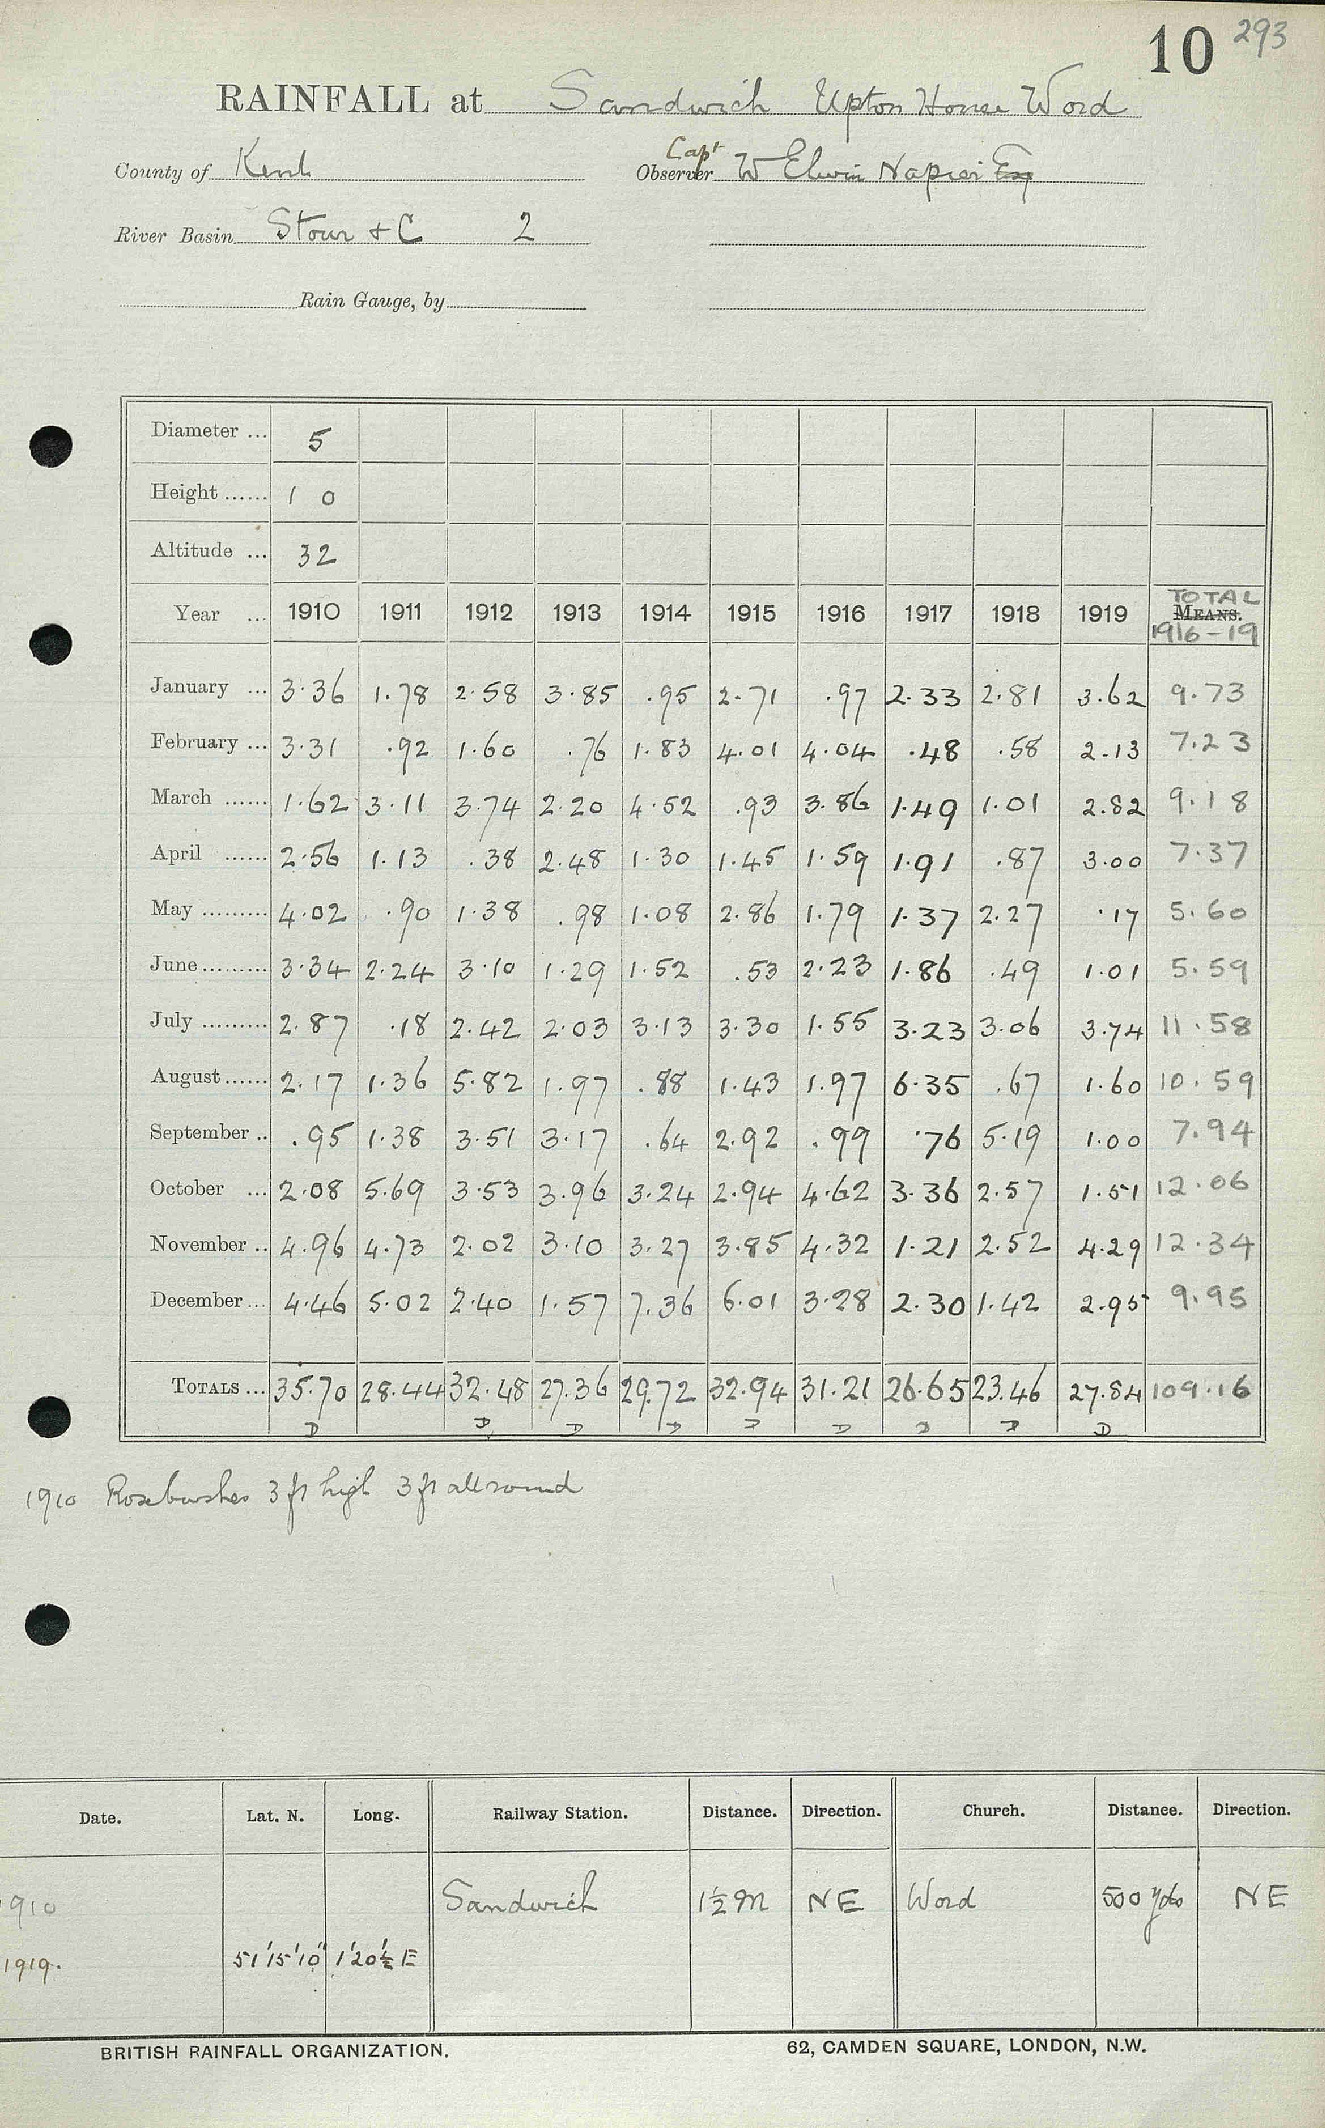 10 293
RAINFALL at Sandwich Upton House Word
County of Kent Observer Capt W Elwin Napier Esq
River Basin Stour & C 2
Rain Gauge, by
Diameter ... 5
Height ...... 1 0
Altitude ... 32
Year ... 1910 1911 1912 1913 1914 1915 1916 1917 1918 1919 MEANS. TOTAL 1916-19
January ... 3.36 1.78 2.58 3.85 .95 2.71 .97 2.33 2.81 3.62 9.73
February ... 3.31 .92 1.60 .76 1.83 4.01 4.04 .48 .58 2.13 7.23
March ...... 1.62 3.11 3.74 2.20 4.52 .93 3.86 1.49 1.01 2.82 9.18
April ...... 2.56 1.13 .38 2.48 1.30 1.45 1.59 1.91 .87 3.00 7.37
May ......... 4.02 .90 1.38 .98 1.08 2.86 1.79 1.37 2.27 .17 5.60
June ......... 3.34 2.24 3.10 1.29 1.52 .53 2.23 1.86 .49 1.01 5.59
July ......... 2.87 .18 2.42 2.03 3.13 3.30 1.55 3.23 3.06 3.74 11.58
August ...... 2.17 1.36 5.82 1.97 .88 1.43 1.97 6.35 .67 1.60 10.59
September .. .95 1.38 3.51 3.17 .64 2.92 .99 .76 5.19 1.00 7.94
October ... 2.08 5.69 3.53 3.96 3.24 2.94 4.62 3.36 2.57 1.51 12.06
November .. 4.96 4.73 2.02 3.10 3.27 3.85 4.32 1.21 2.52 4.29 12.34
December ... 4.46 5.02 2.40 1.57 7.36 6.01 3.28 2.30 1.42 2.95 9.95
TOTALS ... 35.70 28.44 32.48 27.36 29.72 32.94 31.21 26.65 23.46 27.84 109.16
D D D D D D D D D
1910 Rosebushes 3 ft high 3 ft all round
Date. Lat. N. Long. Railway Station. Distance. Direction. Church. Distance. Direction.
1910 Sandwich 1½ M NE Word 500 yds NE
1919. 51°15'10" 1°20½ E
BRITISH RAINFALL ORGANIZATION. 62, CAMDEN SQUARE, LONDON, N.W.